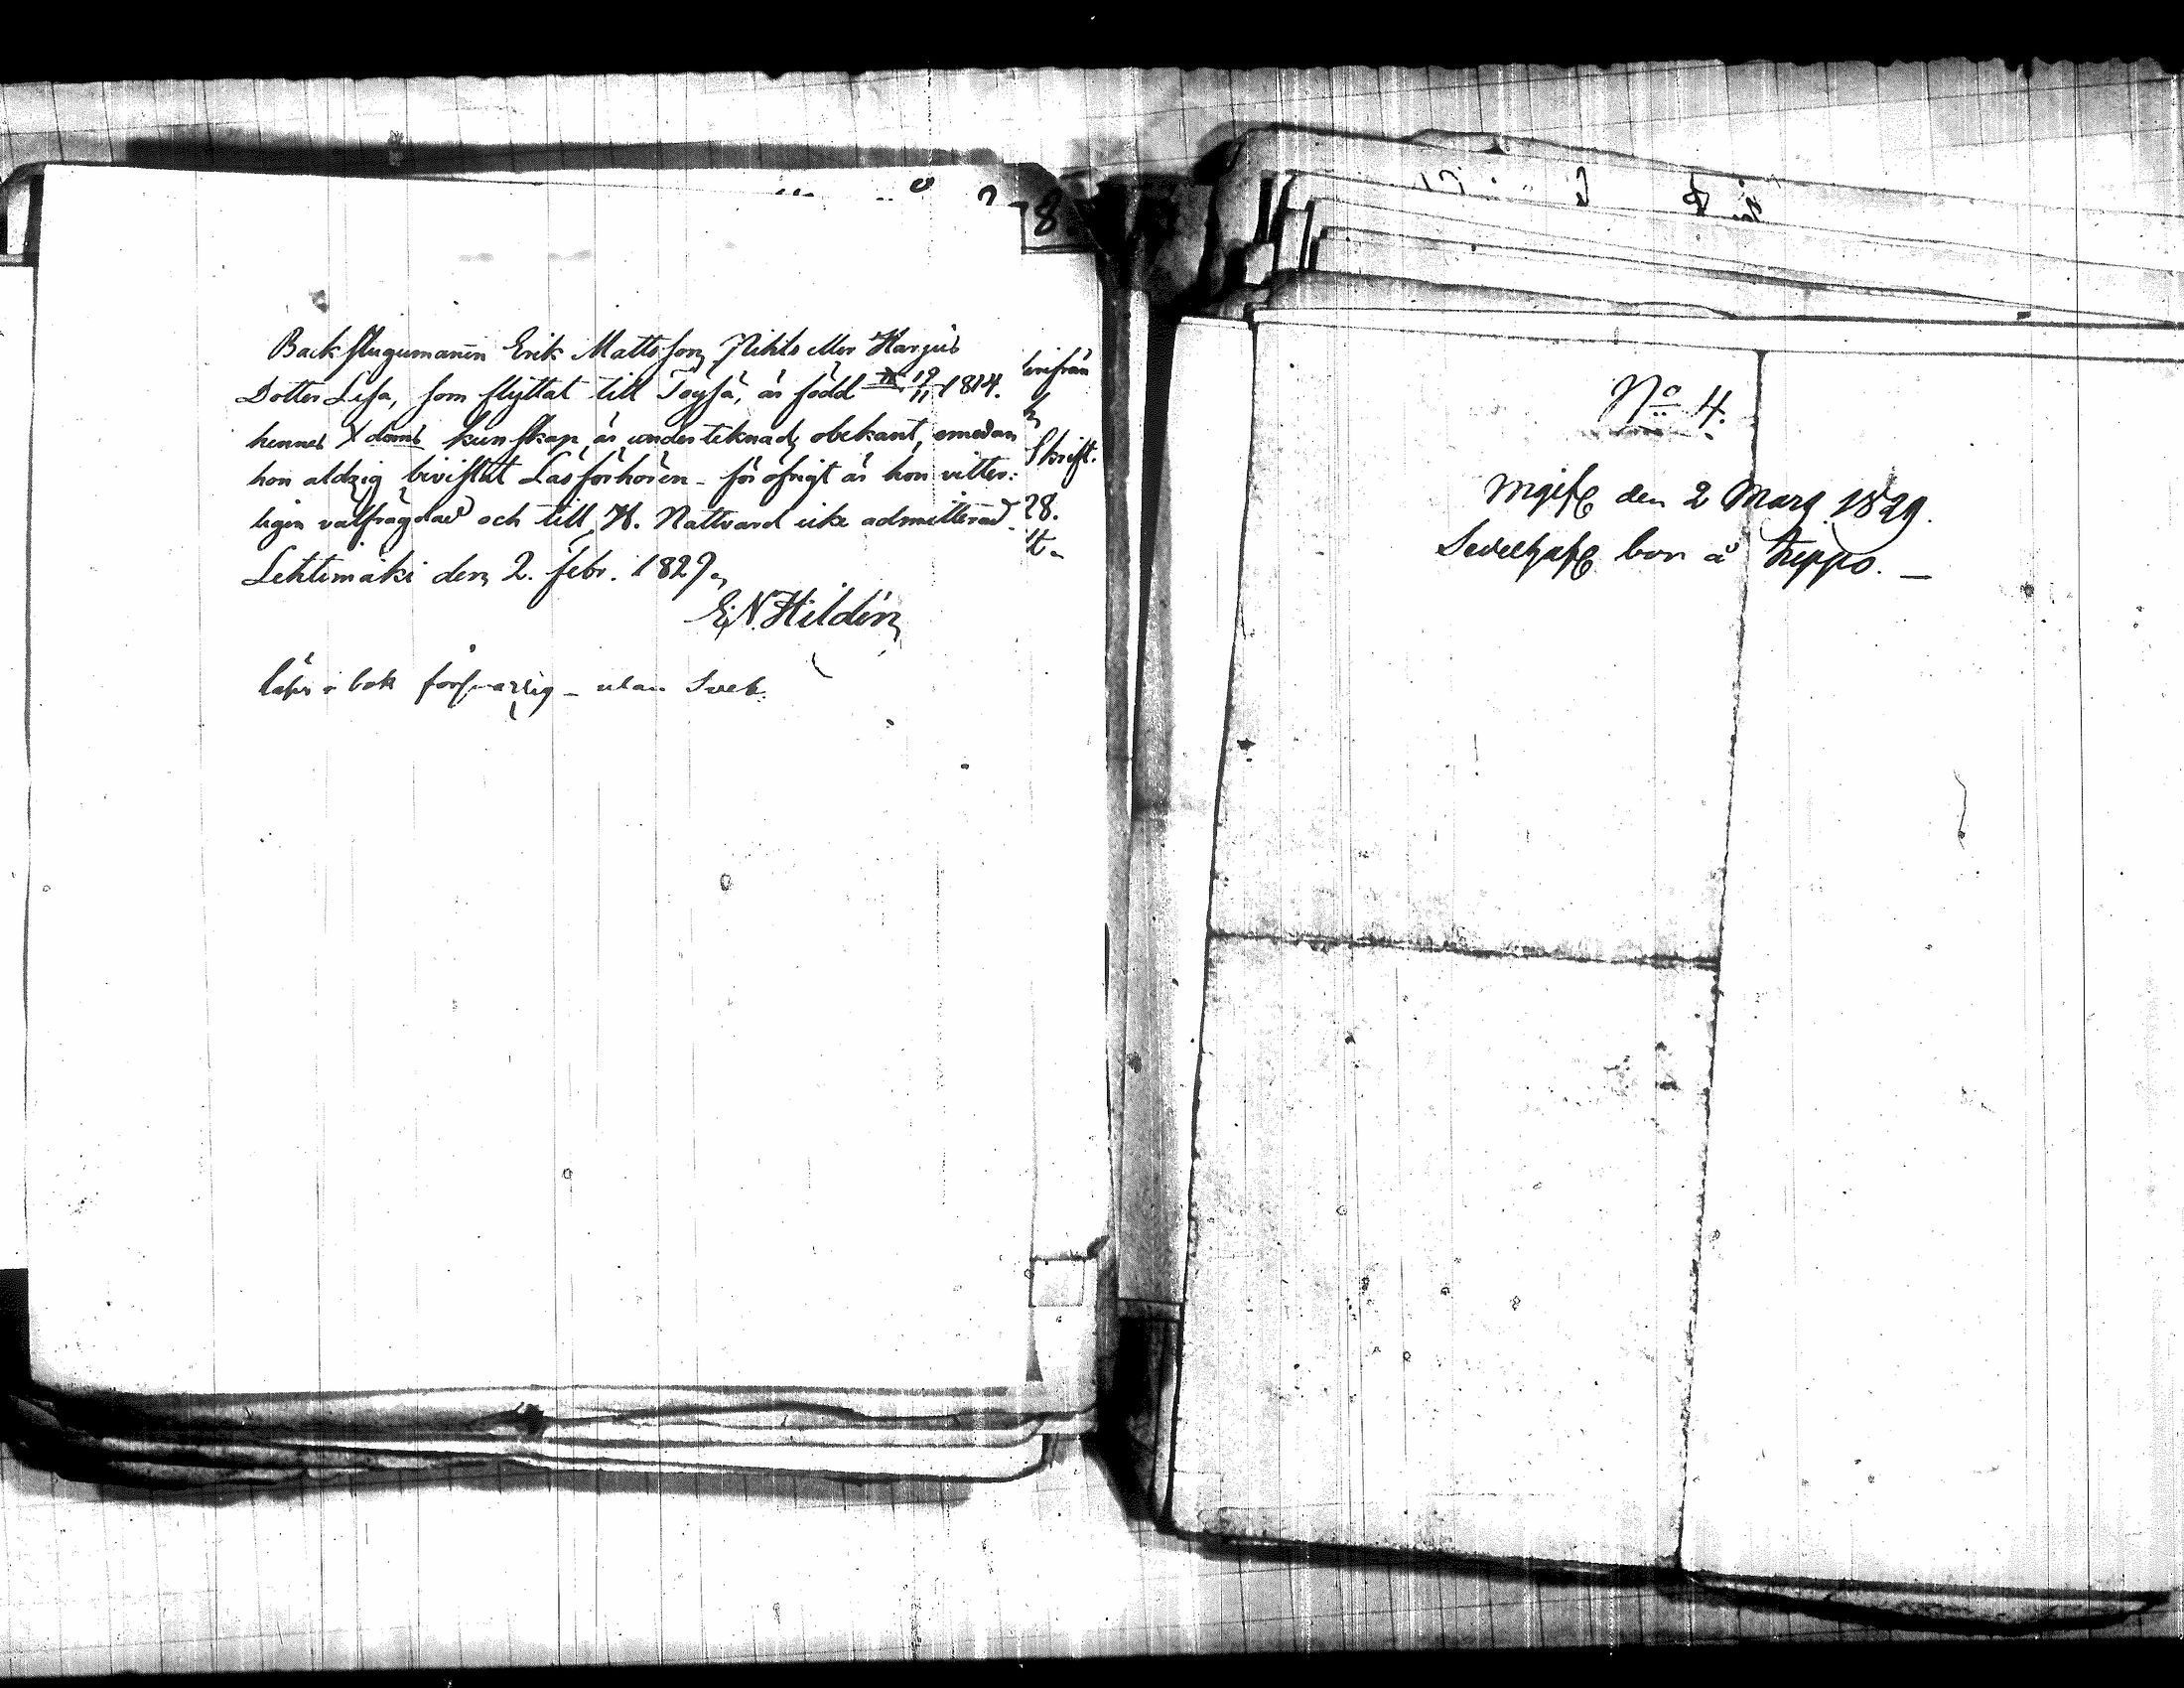 8
Backstugumannen Erik Mattsson Pihls eller Harjus
Dotter Lisa, som flyttat till Töysä, är född 19/11 1814.
hennes Xdoms kunskap är undertecknad obekant, emedan
hon aldrig bivistat Läsförhören - för öfrigt är hon vitter:
ligen välfrägdad och till H. Nattvard icke admitterad.
Lehtimäki den 2. Febr. 1829.
E. N. Hildén
läser i bok försvarlig - utan
härifrån
Skrift.
28.
No 4.
den 2 Mars 1829.
bor å